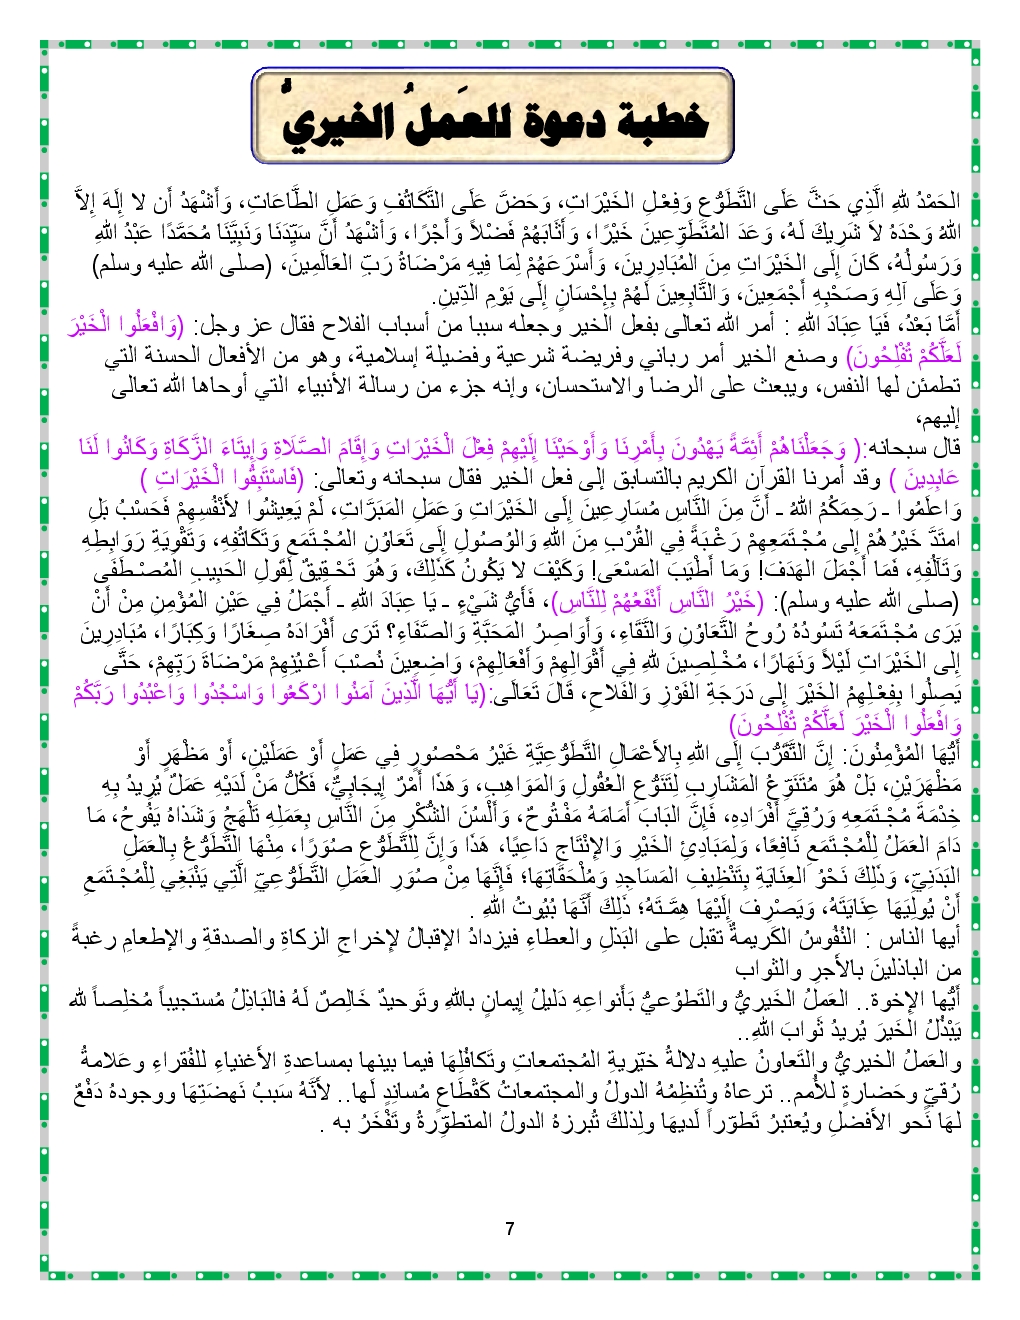 خطبة دعوة للعَملُ الخيريُّ
الحَمْدُ للهِ الَّذِي حَثَّ عَلَى التَّطَوُّعِ وَفِعْلِ الخَيْرَاتِ، وَحَضَّ عَلَى التَّكَاتُفِ وَعَمَلِ الطَّاعَاتِ، وَأَشْهَدُ أَن لا إِلَهَ إِلاَّ
اللهُ وَحْدَهُ لاَ شَرِيكَ لَهُ، وَعَدَ المُتَطَوِّعِينَ خَيْرًا، وَأَثَابَهُمْ فَضْلاً وَأَجْرًا، وَأَشْهَدُ أَنَّ سَيِّدَنَا وَنَبِيَّنَا مُحَمَّدًا عَبْدُ اللهِ
وَرَسُولُهُ، كَانَ إِلَى الخَيْرَاتِ مِنَ المُبَادِرِينَ، وَأَسْرَعَهُمْ لِمَا فِيهِ مَرْضَاةُ رَبِّ العَالَمِينَ، (صلى الله عليه وسلم)
وَعَلَى آلِهِ وَصَحْبِهِ أَجْمَعِينَ، وَالتَّابِعِينَ لَهُمْ بِإِحْسَانٍ إِلَى يَوْمِ الدِّينِ.
أَمَّا بَعْدُ، فَيَا عِبَادَ اللهِ : أمر الله تعالى بفعل الخير وجعله سببا من أسباب الفلاح فقال عز وجل: (وَافْعَلُوا الْخَيْرَ
لَعَلَّكُمْ تُفْلِحُونَ) وصنع الخير أمر رباني وفريضة شرعية وفضيلة إسلامية، وهو من الأفعال الحسنة التي
تطمئن لها النفس، ويبعث على الرضا والاستحسان، وإنه جزء من رسالة الأنبياء التي أوحاها الله تعالى
إليهم،
قال سبحانه:( وَجَعَلْنَاهُمْ أَئِمَّةً يَهْدُونَ بِأَمْرِنَا وَأَوْحَيْنَا إِلَيْهِمْ فِعْلَ الْخَيْرَاتِ وَإِقَامَ الصَّلَاةِ وَإِيتَاءَ الزَّكَاةِ وَكَانُوا لَنَا
عَابِدِينَ ) وقد أمرنا القرآن الكريم بالتسابق إلى فعل الخير فقال سبحانه وتعالى: (فَاسْتَبِقُوا الْخَيْرَاتِ )
وَاعلَمُوا ـ رَحِمَكُمُ اللهُ ـ أَنَّ مِنَ النَّاسِ مُسَارِعِينَ إِلَى الخَيْرَاتِ وَعَمَلِ المَبَرَّاتِ، لَمْ يَعِيشُوا لأَنْفُسِهِمْ فَحَسْبُ بَلِ
امتَدَّ خَيْرُهُمْ إِلى مُجْتَمَعِهِمْ رَغْبَةً فِي القُرْبِ مِنَ اللهِ وَالوُصُولِ إِلَى تَعَاوُنِ المُجْتَمَعِ وَتَكَاتُفِهِ، وَتَقْوِيَةِ رَوَابِطِهِ
وَتَآلُفِهِ، فَمَا أَجْمَلَ الهَدَفَ! وَمَا أَطْيَبَ المَسْعَى! وَكَيْفَ لا يَكُونُ كَذَلِكَ، وَهُوَ تَحْقِيقٌ لِقَولِ الحَبِيبِ المُصْطَفَى
(صلى الله عليه وسلم): (خَيْرُ النَّاسِ أَنْفَعُهُمْ لِلنَّاسِ)، فَأَيُّ شَيْءٍ ـ يَا عِبَادَ اللهِ ـ أَجْمَلُ فِي عَيْنِ المُؤْمِنِ مِنْ أَنْ
يَرَى مُجْتَمَعَهُ تَسُودُهُ رُوحُ التَّعَاوُنِ وَالنَّقَاءِ، وَأَوَاصِرُ المَحَبَّةِ وَالصَّفَاءِ؟ تَرَى أَفْرَادَهُ صِغَارًا وَكِبَارًا، مُبَادِرِينَ
إِلى الخَيْرَاتِ لَيْلاً وَنَهَارًا، مُخْلِصِينَ للهِ فِي أَقْوَالِهِمْ وَأَفْعَالِهِمْ، وَاضِعِينَ نُصْبَ أَعْيُنِهِمْ مَرْضَاةَ رَبِّهِمْ، حَتَّى
يَصِلُوا بِفِعْلِهِمُ الخَيْرَ إِلى دَرَجَةِ الفَوْزِ وَالفَلاحِ، قَالَ تَعَالَى:(يَا أَيُّهَا الَّذِينَ آمَنُوا ارْكَعُوا وَاسْجُدُوا وَاعْبُدُوا رَبَّكُمْ
وَافْعَلُوا الْخَيْرَ لَعَلَّكُمْ تُفْلِحُونَ)
أَيُّهَا المُؤْمِنُونَ: إِنَّ التَّقَرُّبَ إِلَى اللهِ بِالأَعْمَالِ التَّطَوُّعِيَّةِ غَيْرُ مَحْصُورٍ فِي عَمَلٍ أَوْ عَمَلَيْنِ، أَوْ مَظْهَرٍ أَوْ
مَظْهَرَيْنِ، بَلْ هُوَ مُتَنَوِّعُ المَشَارِبِ لِتَنَوُّعِ العُقُولِ وَالمَوَاهِبِ، وَهَذَا أَمْرٌ إِيجَابِيٌّ، فَكُلُّ مَنْ لَدَيْهِ عَمَلٌ يُرِيدُ بِهِ
خِدْمَةَ مُجْتَمَعِهِ وَرُقِيَّ أَفْرَادِهِ، فَإِنَّ البَابَ أَمَامَهُ مَفْتُوحٌ، وَأَلْسُنَ الشُّكْرِ مِنَ النَّاسِ بِعَمَلِهِ تَلْهَجُ وَشَذَاهُ يَفُوحُ، مَا
دَامَ العَمَلُ لِلْمُجْتَمَعِ نَافِعًا، وَلِمَبَادِئِ الخَيْرِ وَالإِنْتَاجِ دَاعِيًا، هَذَا وَإِنَّ لِلتَّطَوُّعِ صُوَرًا، مِنْهَا التَّطَوُّعُ بِالعَمَلِ
البَدَنِيِّ، وَذَلِكَ نَحْوُ العِنَايَةِ بِتَنْظِيفِ المَسَاجِدِ وَمُلْحَقَاتِهَا؛ فَإِنَّهَا مِنْ صُوَرِ العَمَلِ التَّطَوُّعِيِّ الَّتِي يَنْبَغِي لِلْمُجْتَمَعِ
أَنْ يُولِيَهَا عِنَايَتَهُ، وَيَصْرِفَ إِلَيْهَا هِمَّـتَهُ؛ ذَلِكَ أَنَّهَا بُيُوتُ اللهِ .
أيها الناس : النُفُوسُ الكَريمةُ تقبل على البَذلِ والعطاءِ فيزدادُ الإقبالُ لإخراجِ الزكاةِ والصدقةِ والإطعامِ رغبةً
من الباذلينَ بالأجرِ والثواب
أَيُّها الإخوة.. العَملُ الخَيريُّ والتَطوُعيُّ بَأنواعِهِ دَليلُ إيمانٍ باللهِ وتَوحيدٌ خَالِصٌ لَهُ فالبَاذِلُ مُستجيباً مُخلِصاً لله
يَبْذُلُ الخَيرَ يُريدُ ثَوابَ اللهِ..
والعَملُ الخيريُّ والتَعاونُ عليهِ دلالةُ خيّريةِ المُجتمعاتِ وتَكافُلِهَا فيما بينها بمساعدةِ الأغنياءِ للفُقراءِ وعَلامةُ
رُقيِّ وحَضارةٍ للأُمم.. ترعاهُ وتُنظِمُهُ الدولُ والمجتمعاتُ كَقْطَاعٍ مُساندٍ لَها.. لأنّهُ سَببُ نَهضتِهَا ووجودهُ دَفْعٌ
لهَا نَحو الأفضلِ ويُعتبرُ تَطوّراً لَديهَا ولِذلكَ تُبرزهُ الدولُ المتطوِّرةُ وتَفْخَرُ به .
7